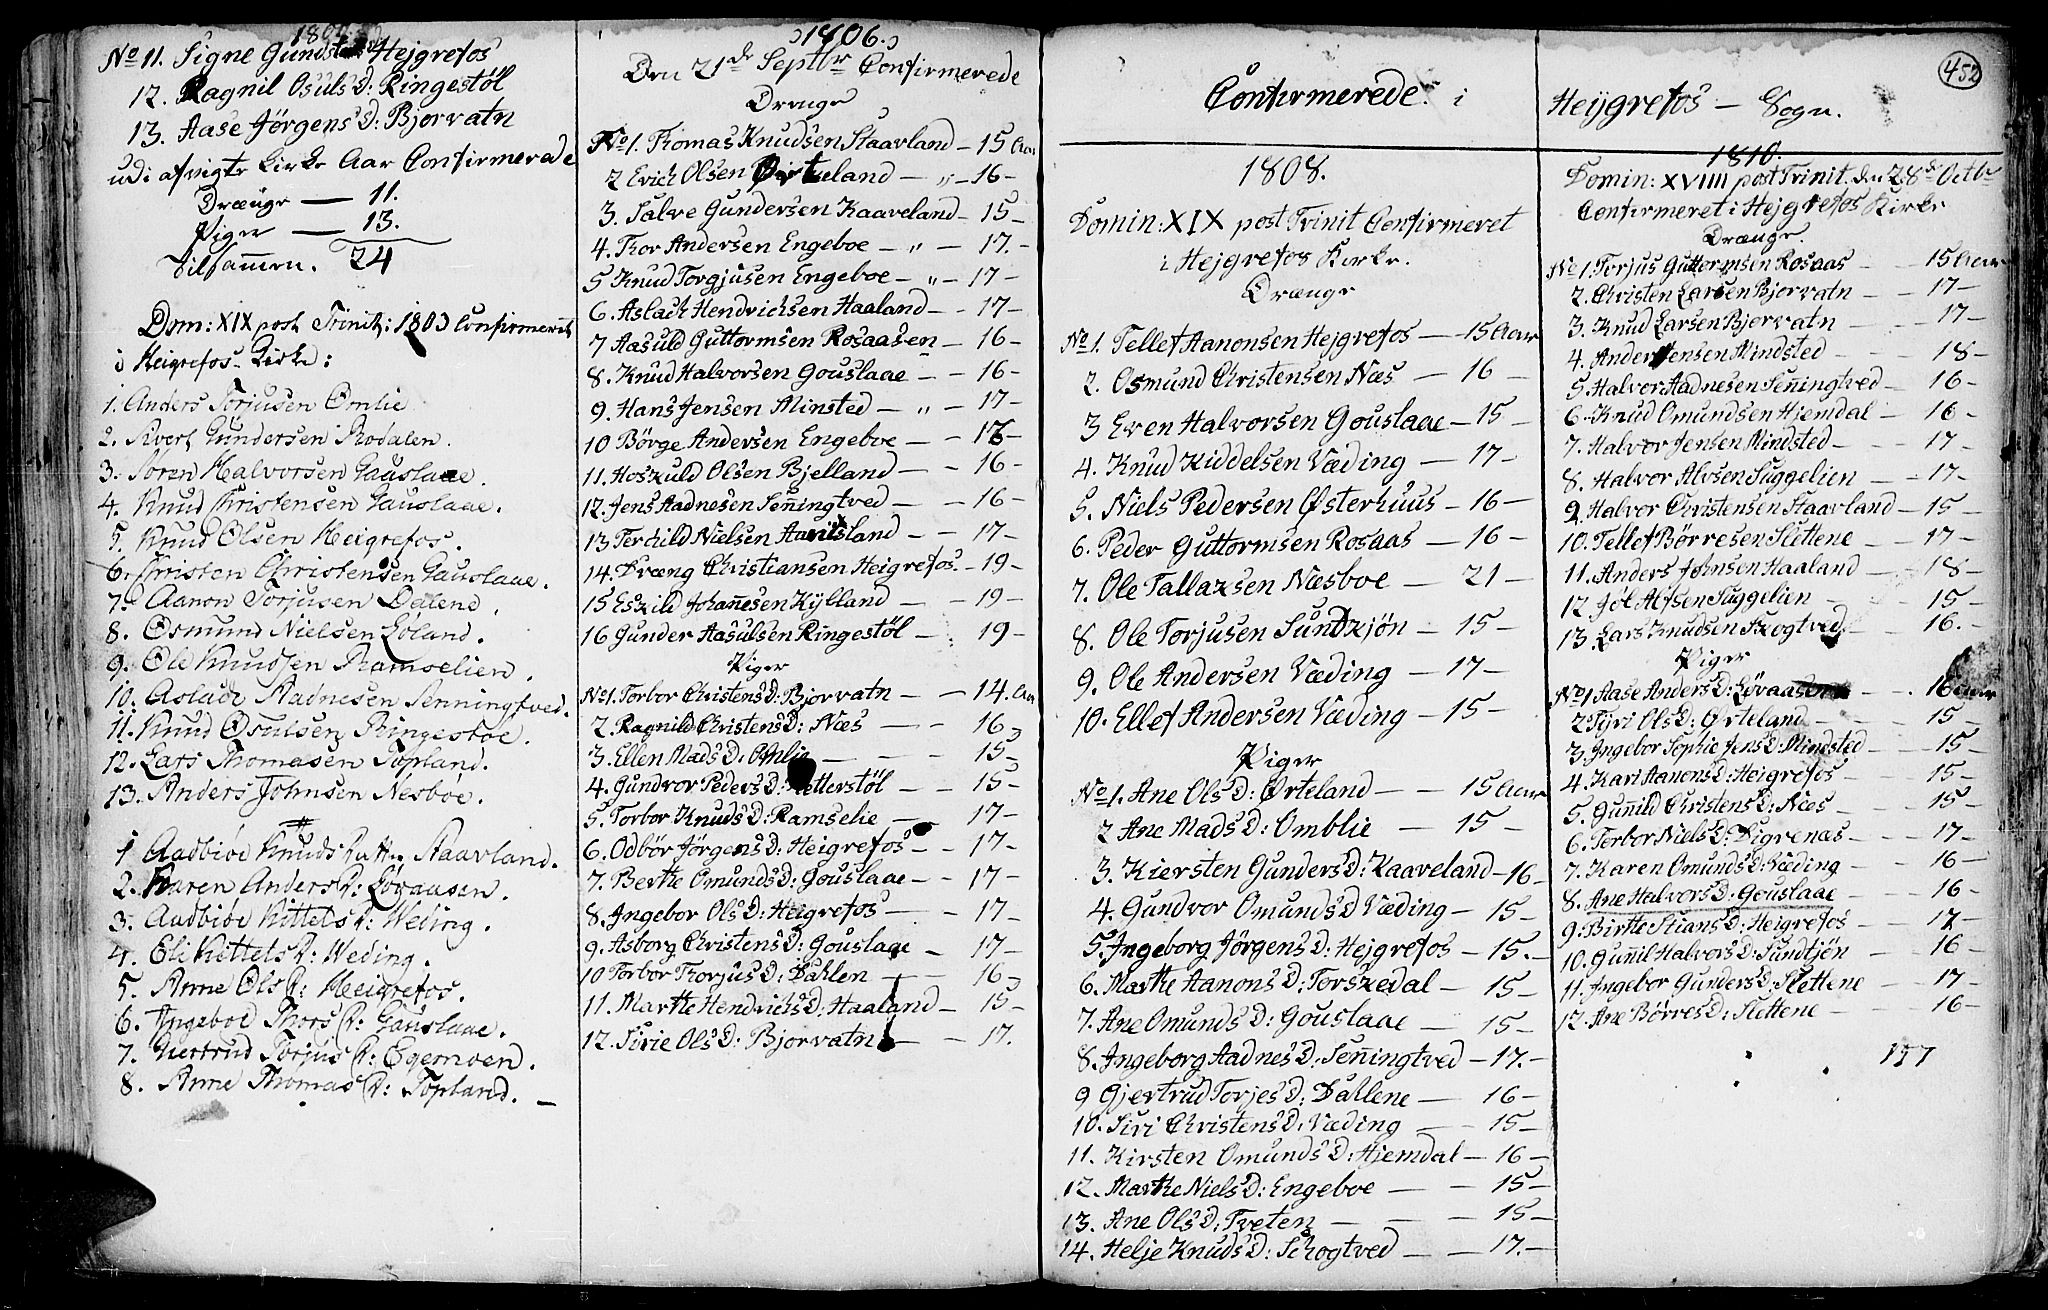 No 11. Signe Gundsteens D Hejgrefos
12. Ragnil Osuls D: Ringestöl
13. Aase Jörgens D: Bjorvatn
udi afvigte Kirke Aar Confirmerede
Drænge — 11.
Piger — 13.
Tilsam̄en. 24
Dom: XIX post Trinit: 1803 Confirmerét
i Heigrefos Kirke:
1. Anders Torjusen Omlie
2. Sivert Gundersen Rodalen.
3. Sören Halvorsen Gauslaae.
4. Knud Christensen Gauslaae.
5. Knud Olsen Heigrefos.
6. Christen Christensen Gauslaae.
7. Aanon Torjusen Dellene.
8. Osmund Nielsen Löland.
9. Ole Knudsen Ramselien.
10. Aslach Aadnesen Senningtved.
11. Knud Osulsen Ringestøe.
12. Lars Thomasen Topland.
13. Anders Johnsen Nesbóe.
1 Aadbiør Knuds Datter Staavland.
2. Karen Anders D: Løvaasen.
3. Aadbiør Kittels D: Weding.
4. Eli Kittels D: Weding.
5. Anne Ols D: Heigrefos.
6. Ingeboe Thors D: Gauslaae.
7. Giertrud Torjus D: Egemoen.
8. Anne Thomas D: Topland. —
1806.
Den 21de Septbr Confirmerede
Drænge
No 1. Thomas Knudsen Staavland — 15 Aar
2 Erich Olsen Ørteland — „ — 16 —
3. Salve Gundersen Kaaveland — 15 —
4. Thor Andersen Engeboe — „ — 17. —
5 Knud Torgjusen Engeboe — „ — 17 —
6. Aslach Hendrichsen Haaland — 17 —
7 Aasuld Guttormsen Rosaasen — 16 —
8. Knud Halvorsen Gouslaae — — 16 —
9. Hans Jensen Minsted — „ — 17 —
10 Börge Andersen Engeboe — — 16 —
11. Hoskuld Olsen Bjelland — — 16 —
12. Jens Aadnesen Sen̄ingtved — — 16 —
13 Terchild Nielsen Haavitsland — — 17 —
14. Dræng Christiansen Heigrefos. — 19 —
15 Eskild Johan̄esen Kylland — — 19 —
16 Gunder Aasulsen Ringestöl — 19 —
Piger
No 1. Torbor Christens D: Bjorvatn — — 14. Aar
2. Ragnild Christens D: Næs — — 16
3. Ellen Mads D: Omlie — — 15 —
4. Gundvor Peders D: Retterstöl — — 15 —
5. Torbor Knuds D: Ramselie — — 17 —
6. Odbör Jörgens D: Heigrefos — — 17 —
7. Berthe Omunds D: Gouslaae — — 17 —
8. Ingebor Ols D: Heigrefos — — 17 —
9. Asborg Christens D: Gouslaae — 17 —
10 Torbor Thorjus D: Dahlen — — 16
11. Marthe Hendrichs D: Haaland — 15 —
12. Sirie Ols D: Bjorvatn — — 17.
Confirmerede i
1808.
Domin: XIX post Trinit Confirmeret
i Hejgrefos Kirke.
Drænge
No 1. Tellef Aanonsen Hejgrefos — 15 Aar
2. Osmund Christensen Næs — 16 —
3 Even Halvorsen Gouslaae — 15 —
4. Knud Kiddelsen Væding — 17 —
5. Niels Pedersen Østerhuus — 16 —
6. Peder Guttormsen Rosaas — 16 —
7. Ole Tallaksen Næsboe — 21 —
8. Ole Torjusen Sundkjön — 15 —
9. Ole Andersen Væding — 17 —
10. Ellef Andersen Væding — 15 —
Piger
No 1. Ane Ols D: Ørteland — — 15 Aar
2 Ane Mads D: Omblie — 15 —
3. Kiersten Gunders D: Kaaveland — 16 —
4. Gundvor Omunds D Væding — 15 —
5. Ingeborg Jörgens D: Hejgrefos — 15. —
6. Marthe Aanons D: Torskedal — 15 —
7. Ane Omunds D: Gouslaae — 15 —
8. Ingeborg Aadnes D: Sen̄ingtved — 17. —
9 Gjertrud Torjes D: Dahlene — 16 —
10. Siri Christens D: Væding — 15 —
11. Kirsten Omunds D: Hjemdal — 16 —
12. Marthe Niels D: Engeboe — — 15 —
13. Ane Ols D: Tveten — — 15 —
14. Helje Knuds D: Schogtved — — 17. —
452
Heijgrefos — Sogn.
1810.
Domin: XVIIII post Trinit. den 28de Octbr
Confirmeret i Hejgrefos Kirke
Drænge.
No 1. Torjus Guttormsen Rosaas — 15 Aar
2. Christen Larsen Bjorvatn — — 17 —
3. Knud Larsen Bjorvatn — — 17 —
4. Anders Jensen Mindsted — — 18 —
5. Halvor Aadnesen Sen̄ingtved — 16 —
6. Knud Omundsen Hjemdal — 16 —
7. Halvor Jensen Mindsted — — 17 —
8. Halvor Alvsen Suggelien — — 17 —
9 Halvor Christensen Staavland — 15 —
10. Tellef Börresen Slettene — 17 —
11. Anders Johnsen Haaland — 18 —
12 Jöl Alfsen Suggelien — — 15 —
13. Lars Knudsen Skogtved — 16. —
Piger
No 1 Aase Anders D: Løvaasen — 16 Aar
2 Tyri Ols D: Ørteland — — 15 —
3. Ingebor Sophie Jens D: Mindsted — 15 —
4. Kari Aanons D: Heigrefos — 15 —
5. Gun̄ild Christens D: Næs — — 15 —
6. Torbor Niels D: Digrenæs — — 17 —
7. Karen Omunds D: Væding — — 16 —
8. Ane Halvors D: Gouslaae — — 16 —
9. Birthe Stians D: Heigrefos — 17 —
10. Gun̄il Halvors D: Sundtjön — 16 —
11. Ingebor Gunders D: Slettene — 17 —
12. Ane Börres D: Slettene — — 16 —
177